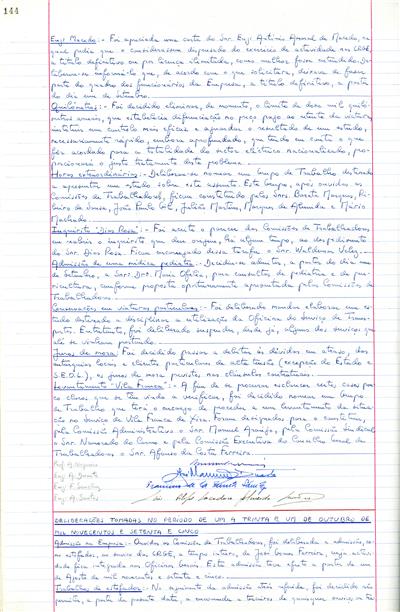 144
Engº Macedo:- Foi apreciada uma carta do Snr. Engº António Amaral de Macedo, na
qual pedia que o considerassem dispensado do exercício de actividade nas CRGE,
a título definitivo ou por licença ilimitada, como melhor fosse entendido. De-
liberou-se informá-lo que, de acordo com o que solicitara, deixava de fazer
parte do quadro dos funcionários da Empresa, a título definitivo, a partir
do dia um de Setembro.
Quilómetros:- Foi decidido eliminar, de momento, o limite de doze mil quiló-
metros anuais, que estabelecia diferenciação no preço pago ao utente da viatura,
instituir um contrôlo mais eficaz e aguardar o resultado de um estudo,
necessariamente rápido, embora aprofundado, que tenha em conta o que
fôr acordado para a totalidade do sector eléctrico nacionalizado, pro-
porcionará o justo tratamento deste problema.
Horas extraordinárias:- Deliberou-se nomear um Grupo de Trabalho destinado
a apresentar um estudo sobre este assunto. Este Grupo, após ouvidas as
Comissões de Trabalhadores, ficou constituído pelos Snrs. Barata Marques, Ri-
beiro de Sousa, João Paulo Gil, Julião Martins, Marques de Almeida e Mário
Machado.
Inquérito "Dias Rosa":- Foi aceite o parecer das Comissões de Trabalhadores
em reabrir o inquérito que deu origem, há algum tempo, ao despedimento
do Snr. Dias Rosa. Ficou encarregado dessa tarefa o Snr. Waldemar Veloz.
Admissão de uma médica pediatra:- Decidiu-se admitir, a partir do dia um
de Setembro, a Snra. Dra. Maria Ofélia, para consultas de pediatria e de pue-
ricultura, conforme proposta oportunamente apresentada pela Comissões de
Trabalhadores.
Reparações em viaturas particulares:- Foi deliberado mandar elaborar um es-
tudo destinado a disciplinar a utilização da Oficina do Serviço de Trans-
portes. Entretanto, foi deliberado suspender, desde já, alguns dos serviços que
até se vinham prestando.
Juros de mora: Foi decidido passar a debitar às dívidas em atraso, das
autarquias locais e clientes particulares de alta tensão (excepção do Estado e
S.E.D.L.), os juros de mora previstos nas cláusulas contratuais.
Levantamento "Vila Franca":- A fim de se procurar esclarecer certos casos pou-
co claros, que se têm vindo a verificar, foi decidido nomear um Grupo
de Trabalho que terá o encargo de proceder a um levantamento da situa-
ção no Serviço de Vila Franca de Xira. Foram designados para o constituir,
pela Comissão Administrativa o Snr. Manuel Araújo, pela Comissão Sindical
o Snr. Namorado do Carmo e pela Comissão Executiva do Conselho Geral de
Trabalhadores, o Snr. Afonso da Costa Ferreira.
Prof. A. Nogueira
Eng. A. Duarte
Eng. F. Sanchez
Eng. A. Santos
DELIBERAÇÕES TOMADAS NO PERÍODO DE UM A TRINTA E UM DE OUTUBRO DE
MIL NOVECENTOS E SETENTA E CINCO
Admissão na Empresa:- Ouvida a Comissão de Trabalhadores, foi deliberada a admissão, co-
mo estofador, no nosso das CRGE, a tempo inteiro, de José Gomes Ferreira, cuja activi-
dade fica integrada nas Oficinas Gerais. Esta admissão terá efeito a partir de um
de Agosto de mil novecentos e setenta e cinco.
Trabalhos de estofador:- No seguimento da admissão atrás referida, foi decidido não
permitir, a partir da presente data, a encomenda a terceiros de quaisquer serviços de